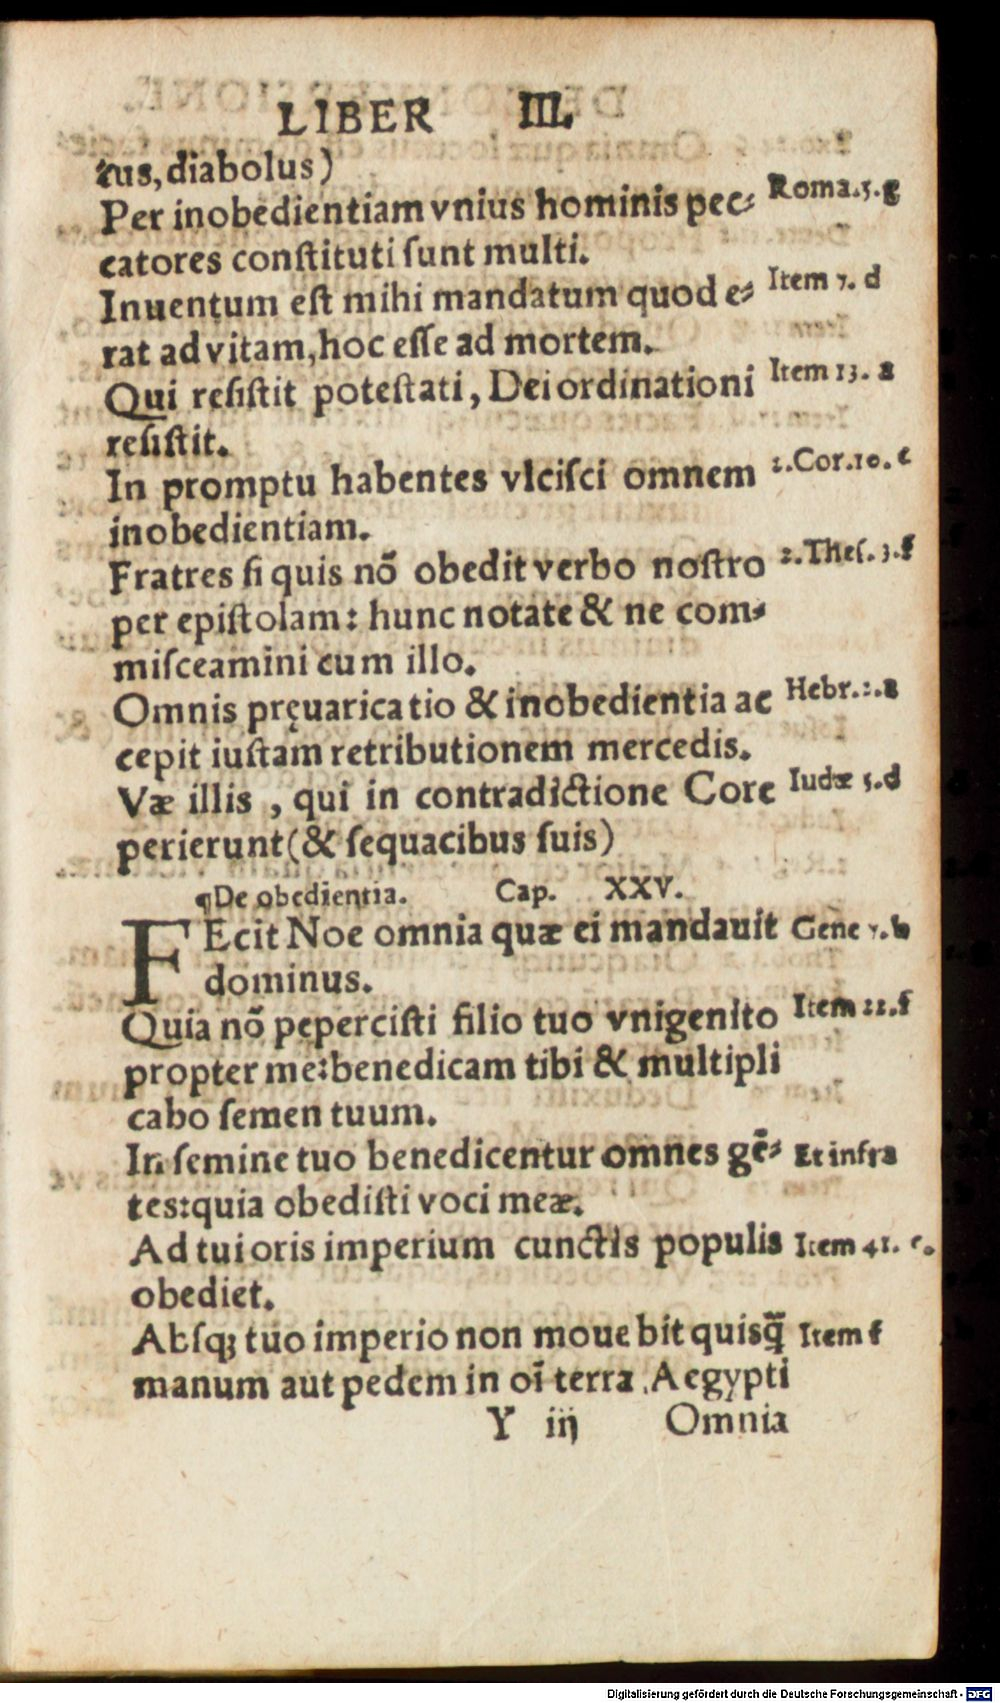 LIBER III.
tus, diabolus)
Per inobedientiam vnius hominis pec⸗ Roma.5.g
catores constituti sunt multi.
Inuentum est mihi mandatum quod e⸗ Item 7. d
rat ad vitam, hoc esse ad mortem.
Qui resistit potestati, Dei ordinationi Item 13. a
resistit.
In promptu habentes vlcisci omnem 2.Cor.10. c
inobedientiam.
Fratres si quis nõ obedit verbo nostro 2.Thes. 3.f
per epistolam: hunc notate & ne com⸗
misceamini cum illo.
Omnis pręuaricatio & inobedientia ac Hebr.2.a
cepit iustam retributionem mercedis.
Væ illis , qui in contradictione Core Iudæ 5.d
perierunt (& sequacibus suis)
¶De obedientia. Cap. XXV.
FEcit Noe omnia quæ ei mandauit Gene 7.b
dominus.
Quia nõ pepercisti filio tuo vnigenito Item 22.f
propter me: benedicam tibi & multipli
cabo semen tuum.
In semine tuo benedicentur omnes gẽ⸗ Et infra
tes: quia obedisti voci meæ.
Ad tui oris imperium cunctis populis Item 41. e.
obediet.
Absq; tuo imperio non mouebit quisq̃ Item f
manum aut pedem in oĩ terra Aegypti
Y iij Omnia
Digitalisierung gefördert durch die Deutsche Forschungsgemeinschaft - DFG